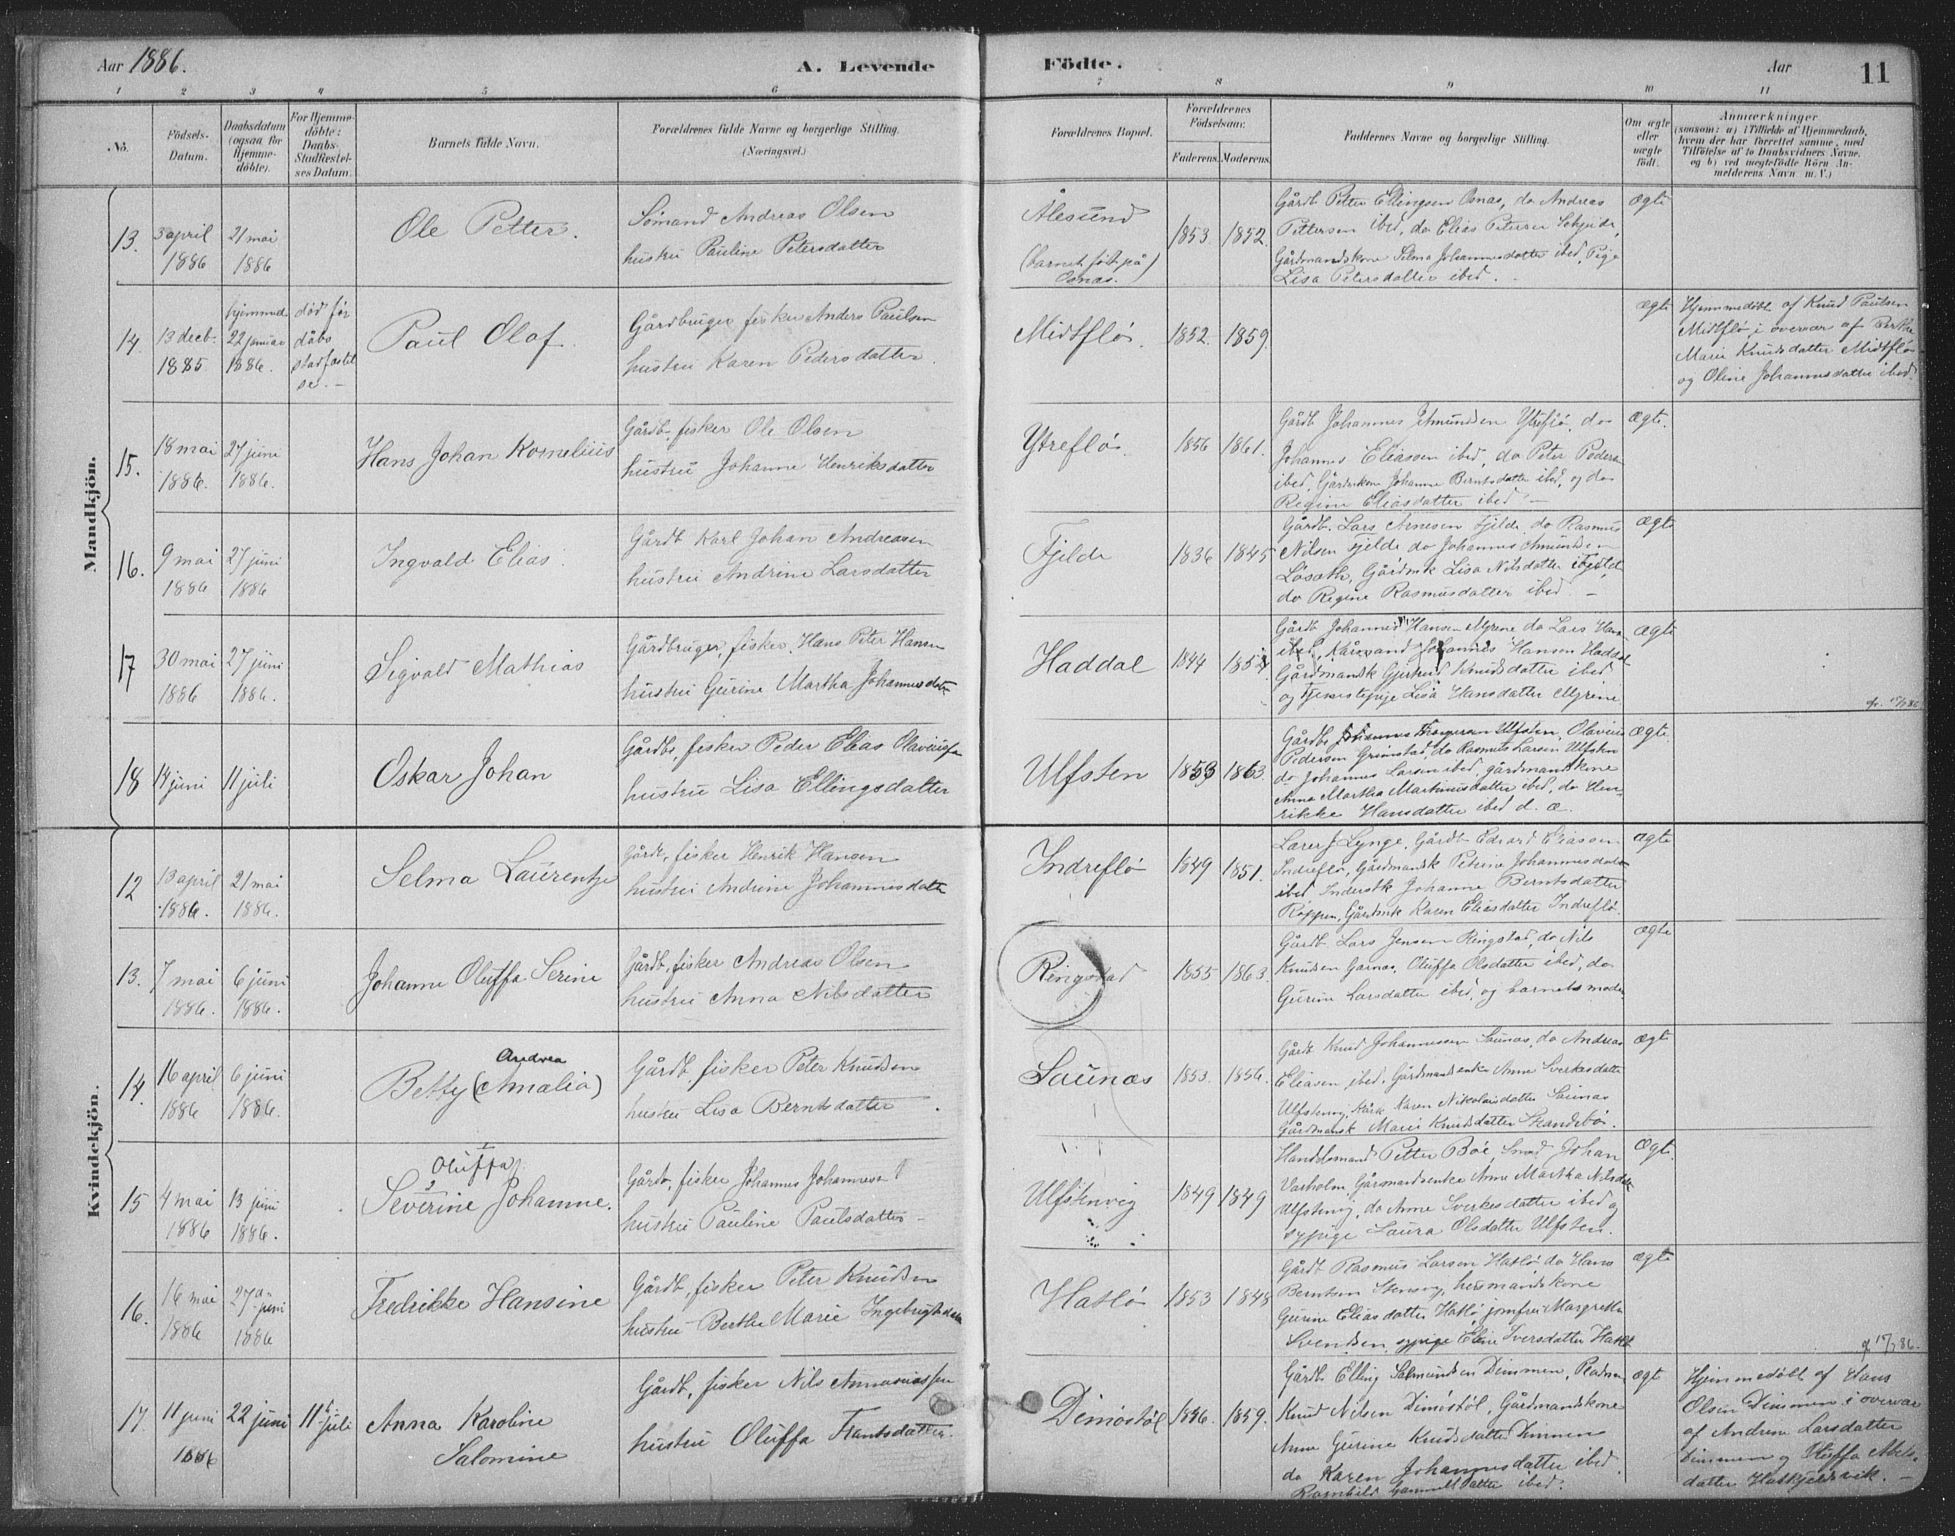 Aar 1886.
A. Levende
Födte.
Aar
11
1 2 3 4 5 6 7 8 9 10 11
No.
Födsels-
Datum.
Daabsdatum
(ogsaa for
Hjemme-
döbte).
For Hjemme-
döbte:
Daabs-
Stadfæstel-
ses Datum.
Barnets fulde Navn.
Forældrenes fulde Navne og borgerlige Stilling.
(Næringsvei.)
Forældrenes Bopæl.
Forældrenes
Födselsaar.
Faderens. Moderens.
Faddernes Navne og borgerlige Stilling.
Om ægte
eller
uægte
födt.
Anmærkninger
(saasom: a) i Tilfælde af Hjemmedaab,
hvem der har forrettet samme, med
Tilföielse af to Daabsvidners Navne,
og b) ved uegtefödte Börn An-
melderens Navn m. V.)
Mandkjön.
13. 3 april 1886
21 mai 1886
Ole Petter.
Sömand Andreas Olsen
hustru Pauline Petersdatter
Ålesund
(barnet født på)
Osnas.
1853. 1852.
Gårdb Petter Ellingsen Osnas, do Andreas
Pettersen ibid, do Elias Petersen
Gårdmandskone Selma Johannesdatter ibid, Pige
Lisa Petersdatter ibid.
ægte
14. 13 decb. 1885
hjemmed. 22 januar 1886.
død før
dåbs
stadfæstel
se. —
Paul Olaf.
Gårdbruger fisker Anders Paulsen
hustru Karen Pedersdatter.
Midtflø.
1852. 1859.
ægte
Hjemmedøbt af Knud Paulsen
Midtflø i overvær af Berthe
Marie Knudsdatter Midtflø
og Oline Johannesdatter ibid.
15. 18 mai 1886.
27 juni 1886.
Hans Johan Kornelius
Gårdb. fisker Ole Olsen
hustru Johanne Henriksdatter
Ytreflø.
1856 1861.
Gårdb Johannes Amundsen Ytreflø, do
Johannes Eliassen ibid, do Peter Peders
ibid, Gårdmkone Johanne Berntsdatter ibid, og do
Regine Eliasdatter ibid —
Ægte.
16. 9 mai 1886
27 juni 1886
Ingvald Elias.
Gårdb Karl Johan Andreasen
hustru Andrine Larsdatter
Fjelde
1836 1845
Gårdb. Lars Arnesen Fjelde, do Rasmus
Nilsen Fjelde do Johannes Amundsen
Løseth, Gårdmk Lisa Nilsdatter Fjeld,
do Regine Rasmusdatter ibid. —
ægte
17 30 mai 1886
27 juni 1886.
Sigvald Mathias
Gårdbruger, fisker Hans Peter Hansen
hustru Gurine Martha Johannesdatr
Haddal
1844
Gårdb Johannes Hansen Myrene do Lars Hans
ibid, Johannes Hansen Haddal
Gårdmandsk Gjertrud Knudsdatter ibid
og Tjenestepige Lisa Hansdatter Myrene
ægte
18 14 juni
11 juli
Oskar Johan
Gårdb, fisker Peder Elias Olaviussen
hustru Lisa Ellingsdatter
Ulfsten
1853 1863.
Gårdb Johannes Ulfsten, Olavius
Pedersen Grimstad, do Rasmus Larsen Ulfsten
do Johannes Larsen ibid, gårdmandskone
Anna Martha Martinusdatter ibid, do Hen-
rikke Hansdatter ibid d. æ.
ægte.
Kvindekjön.
12 13 april 1886.
21 mai 1886.
Selma Laurentze
Gårdb, fisker Henrik Hansen
hustru Andrine Johannesdatter
Indreflø
1849 1851.
Lærer J Lynge, Gårdb Edvard Eliassen
Indreflø, Gårdmandsk Petrine Johannesdatter
ibid, Inderstk Johanne Berntsdatter
Røppen, Gårdmk Karen Eliasdatter Indreflø.
ægte
13. 7 mai 1886.
6 juni 1886.
Johanne Oluffa Serine
Gårdb, fisker Andreas Olsen
hustru Anna Nilsdatter
Ringstad
1855 1863
Gårdb. Lars Jensen Ringstad, do Nils
Knudsen Garnæs, Oluffa Olsdatter ibid, do
Gurine Larsdatter ibid, og barnets moder
ægte
14. 16 april 1886
6 juni 1886.
Andrea
Betty (Amalia)
Gårdb. fisker Peter Knudsen
hustru Lisa Berntsdatter
Saunæs
1853. 1856.
Gårdb Knud Johannessen Saunæs, do Andreas
Eliasen ibid, Gårdmandsenke Anne Sverkesdatter
Ulfstenvig, Karen Nikolaisdatter Saunæs
Gårdmandsk Marie Knudsdatter Skandebø.
ægt
15 4 mai 1886
13 juni 1886.
Oluffa
Severine Johanne.
Gårdb, fisker Johannes Johannessen
hustru Pauline Paulsdatter
Ulfstenvig
1849 1849
Handelsmand Petter Bøe, Johan
Varholm Gårdmandsenke Anne Martha Nilsdatr
Ulfstenvig, do Anne Sverkesdatter ibid og
sypige Laura Olsdatter Ulfsten.
Ægte.
16. 16 mai 1886
27 juni 1886
Fredrikke Hansine
Gårdb, fisker Peter Knudsen
hustru Berthe Marie Ingebrigtsdatr
Hatlø
1853 1848
Gårdb Rasmus Larsen Hatlø, do Hans
Berntsen husmandskone
Gurine Eliasdatter Hatlø, jomfru Margrethe
Svendsen, sypige Eline Iversdatter Hatlø
ægte
15/7 86.
17. 11 juni 1886
22 juni
11te juli
Anna Karoline
Salomine
Gårdb, fisker Nils Annaniassen
hustru Oluffa Frantsdatter.
Dimøstøl
1856. 1859.
Gårdb. Elling Salmundsen Dimmen,
Knud Nilsen Dimøstøl, Gårdmandskone
Anne Gurine Knudsdatter Dimmen
do Karen Johannesdatter ibid.
Ragnhild Gammelsdatter ibid.
ægt
Hjemmedøbt af Hans
Olsen Dimmen i overvær
af Andrine Larsdatter
Dimmen og Oluffa Abels-
datter.